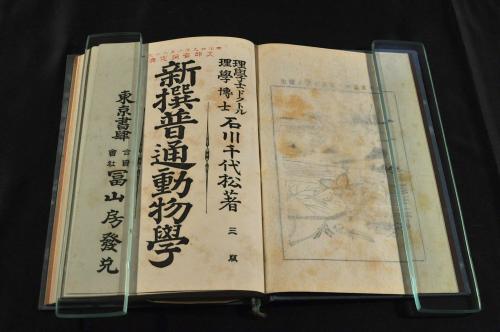 理學士ドクトル
理學博士
石川千代松著
三版
新撰普通動物學
東京書肆
合資
會社
冨山房發兌